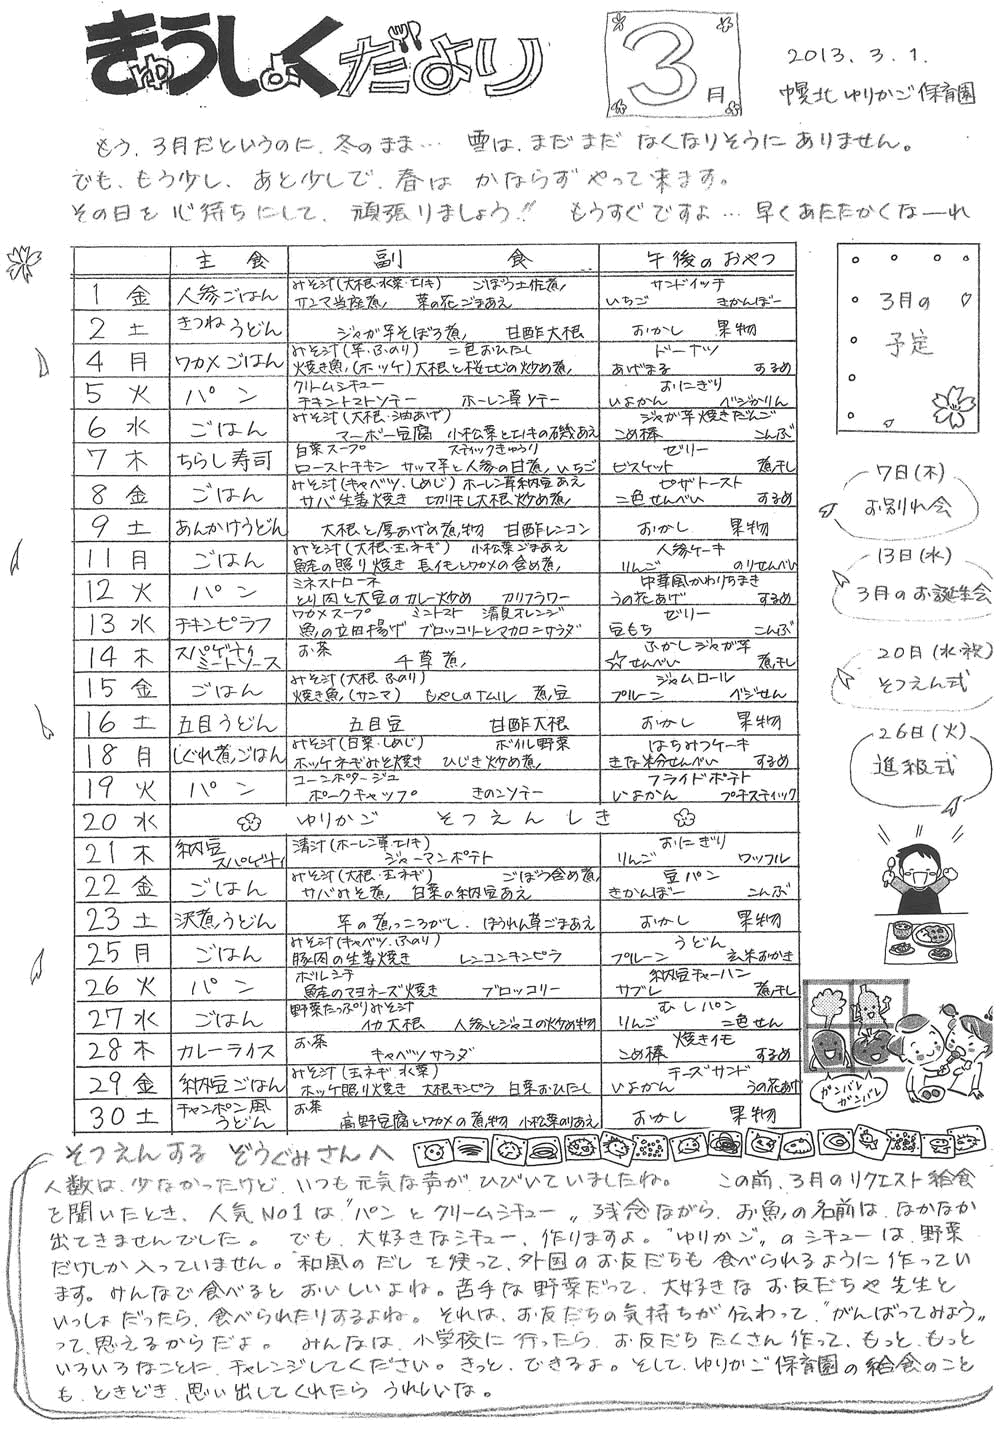 きゅうしょくだより
3月
2013.3.1.
幌北ゆりかご保育園
もう、3月だというのに、冬のまま… 雪は、まだまだ なくなりそうに ありません。
でも、もう少し、あと少しで、春は かならず やって来ます。
その日を 心待ちにして、頑張りましょう!! もうすぐですよ… 早くあたたかくな〜れ
主食 副食 午後のおやつ
1 金 人参ごはん みそ汁(大根・水菜・エノキ) ごぼう土佐煮 サンドイッチ
サンマ当座煮 菜の花ごまあえ いちご きかんぼー
2 土 きつねうどん ジャガ芋そぼろ煮 甘酢大根 おかし 果物
4 月 ワカメごはん みそ汁(芋・ふのり) 二色おひたし ドーナツ
焼き魚(ホッケ) 大根と桜エビの炒め煮 あげまる するめ
5 火 パン クリームシチュー おにぎり
チキントマトソテー ホーレン草ソテー いよかん ベジかりん
6 水 ごはん みそ汁(大根・油あげ) ジャガ芋焼きだんご
マーボー豆腐 小松菜とエノキの磯あえ こめ棒 こんぶ
7 木 ちらし寿司 白菜スープ スティックきゅうり ゼリー
ローストチキン サツマ芋と人参の甘煮 いちご ビスケット 煮干し
8 金 ごはん みそ汁(キャベツ・しめじ) ホーレン草納豆あえ ピザトースト
サバ生姜焼き 切り干し大根炒め煮 二色せんべい するめ
9 土 あんかけうどん 大根と厚あげの煮物 甘酢レンコン おかし 果物
11 月 ごはん みそ汁(大根・玉ネギ) 小松菜ごまあえ 人参ケーキ
鮭の照り焼き 長イモとワカメの含め煮 りんご のりせんべい
12 火 パン ミネストローネ 中華風かわりちまき
とり肉と大豆のカレー炒め カリフラワー うの花あげ するめ
13 水 チキンピラフ ワカメスープ ミニトマト 清見オレンジ ゼリー
魚の立田揚げ ブロッコリーとマカロニサラダ 豆もち こんぶ
14 木 スパゲティミートソース お茶 ふかしジャガ芋
千草煮 ☆せんべい 煮干し
15 金 ごはん みそ汁(大根・ふのり) ジャムロール
焼き魚(サンマ) もやしのナムル 煮豆 プルーン ベジせん
16 土 五目うどん 五目豆 甘酢大根 おかし 果物
18 月 しぐれ煮ごはん みそ汁(白菜・しめじ) ボイル野菜 はちみつケーキ
ホッケネギみそ焼き ひじき炒め煮 きな粉せんべい するめ
19 火 パン コーンポタージュ フライドポテト
ポークチャップ きのこソテー いよかん プチスティック
20 水 ゆりかご そつえんしき
21 木 納豆スパゲティ 清汁(ホーレン草・エノキ) おにぎり
ジャーマンポテト りんご ワッフル
22 金 ごはん みそ汁(大根・玉ネギ) ごぼう含め煮 豆パン
サバみそ煮 白菜の納豆あえ きかんぼー こんぶ
23 土 沢煮うどん 芋の煮っころがし ほうれん草ごまあえ おかし 果物
25 月 ごはん みそ汁(キャベツ・ふのり) うどん
豚肉の生姜焼き レンコンキンピラ プルーン 玄米おかき
26 火 パン ボルシチ 納豆チャーハン
鮭のマヨネーズ焼き ブロッコリー サブレ 煮干し
27 水 ごはん 野菜たっぷりみそ汁 むしパン
イカ大根 人参とジャコの炒め物 りんご 二色せん
28 木 カレーライス お茶 焼きイモ
キャベツサラダ こめ棒 するめ
29 金 納豆ごはん みそ汁(玉ネギ・水菜) チーズサンド
ホッケ照り焼き 大根キンピラ 白菜おひたし いよかん うの花あげ
30 土 チャンポン風うどん お茶
高野豆腐とワカメの煮物 小松菜のりあえ おかし 果物
3月の
予定
7日(木)
お別れ会
13日(水)
3月のお誕生会
20日(水・祝)
そつえん式
26日(火)
進級式
ガンバレ
ガンバレ
そつえんする ぞうぐみさんへ
人数は、少なかったけど、いつも元気な声が、ひびいていましたね。 この前、3月のリクエスト給食
を聞いたとき、人気No1は"パンとクリームシチュー" 残念ながら、お魚の名前は、なかなか
出てきませんでした。 でも、大好きなシチュー、作りますよ。"ゆりかご"のシチューは、野菜
だけしか入っていません。和風のだしを使って、外国のお友だちも食べられるように作ってい
ます。みんなで食べるとおいしいよね。苦手な野菜だって、大好きなお友だちや先生と
いっしょだったら、食べられたりするよね。それは、お友だちの気持ちが伝わって、"がんばってみよう"
って、思えるからだよ。 みんなは、小学校に行ったら、お友だちたくさん作って、もっと、もっと
いろいろなことに、チャレンジしてください。きっと、できるよ。そして、ゆりかご保育園の給食のこと
も、ときどき、思い出してくれたら うれしいな。